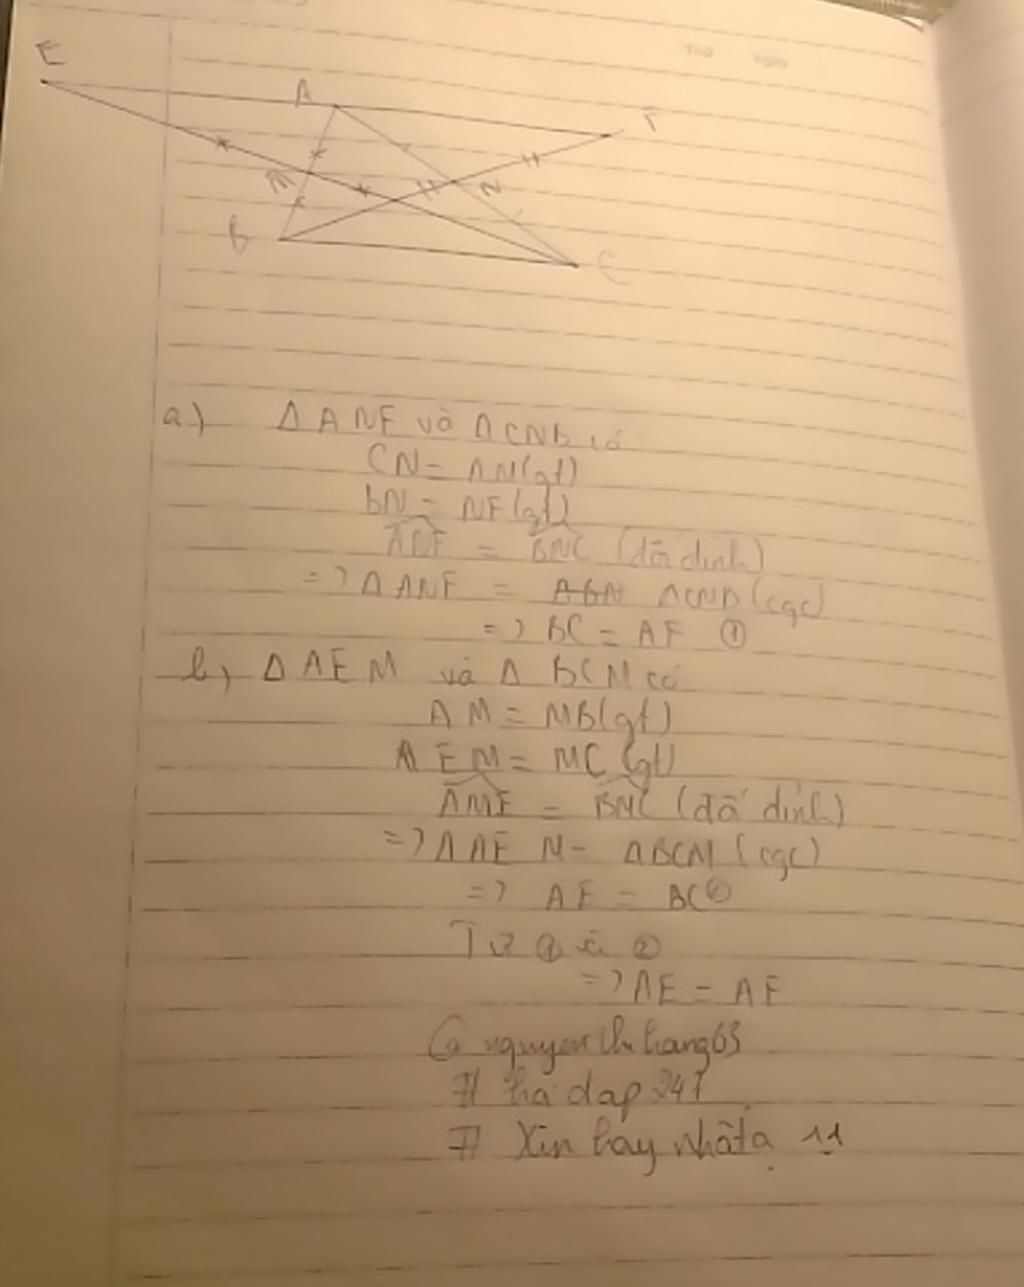 E
A
F
M
N
B
C
a) Δ ANF và ΔCNB có
CN = AN (gt)
BN = NF (gt)
ANF = BNC (đối đỉnh)
=> Δ ANF = ΔCNB (cgc)
=> BC = AF ①
b, Δ AEM và Δ BCM có
AM = MB (gt)
EM = MC (gt)
AME = BMC (đối đỉnh)
=> Δ AEM = ΔBCM (cgc)
=> AE = BC ②
Từ ① và ②
=> AE = AF
nguyenthihang63
# hoidap247
# Xin hay nhất ạ